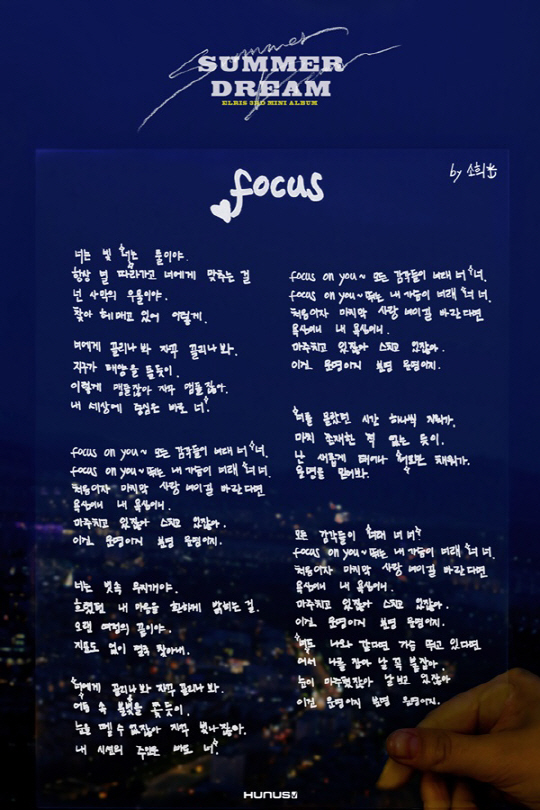 Summer
SUMMER
DREAM
ELRIS 3RD MINI ALBUM
focus
by 소희
너는 빛 너는 물이야.
항상 널 따라가고 너에게 맞추는 걸
넌 사막의 우물이야.
찾아 헤매고 있어 이렇게.
너에게 끌리나 봐 자꾸 끌리나 봐.
지구가 태양을 돌듯이.
이렇게 맴돌잖아 자꾸 맴돌잖아.
내 세상에 중심은 바로 너
focus on you~ 모든 감각들이 너래 너 너.
focus on you~ 뛰는 내 가슴이 너래 너 너.
처음이자 마지막 사랑 너이길 바란다면
욕심이니 내 욕심이니.
마주치고 있잖아 스치고 있잖아.
이건 운명이지 분명 운명이지.
너는 빛속 무지개야.
흐렸던 내 마음을 환하게 밝히는 걸.
오랜 여정의 끝이야.
지도도 없이 헤매 찾아내.
너에게 끌리나 봐 자꾸 끌리나 봐.
어둠 속 불빛을 쫓듯이.
눈을 뗄 수 없잖아 자꾸 빛나잖아.
내 시선의 주인은 바로 너
focus on you~ 모든 감각들이 너래 너 너.
focus on you~ 뛰는 내 가슴이 너래 너 너.
처음이자 마지막 사랑 너이길 바란다면
욕심이니 내 욕심이니.
마주치고 있잖아 스치고 있잖아.
이건 운명이지 분명 운명이지.
너를 몰랐던 시간 하나씩 지워가.
마치 존재한 적 없는 듯이.
난 새롭게 태어나 너로만 채워가.
운명을 믿어봐.
모든 감각들이 너래 너 너
focus on you~ 뛰는 내 가슴이 너래 너 너.
처음이자 마지막 사랑 너이길 바란다면
욕심이니 내 욕심이니.
마주치고 있잖아 스치고 있잖아.
이건 운명이지 분명 운명이지.
너도 나와 같다면 가슴 뛰고 있다면
어서 나를 잡아 날 꼭 붙잡아.
눈이 마주쳤잖아 날 보고 있잖아
이건 운명이지 분명 운명이지.
HUNUS